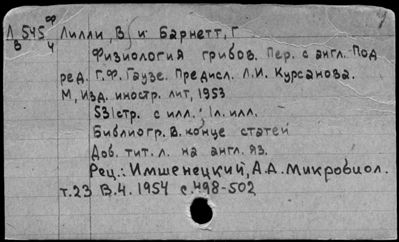 Л 545 Ф Лилли, В и Барнетт, Г
В 4
Физиология грибов. Пер. с англ. Под
ред. Г.Ф. Гаузе. Предисл. Л.И. Курсанова.
М, Изд. иностр. лит, 1953
531стр. с илл.; 1л. илл.
Библиогр. В. конце статей
Доб. тит. л. на англ. яз.
Рец.: Имшенецкий, А.А. Микробиол.
т.23 В.4. 1954 с.498-502